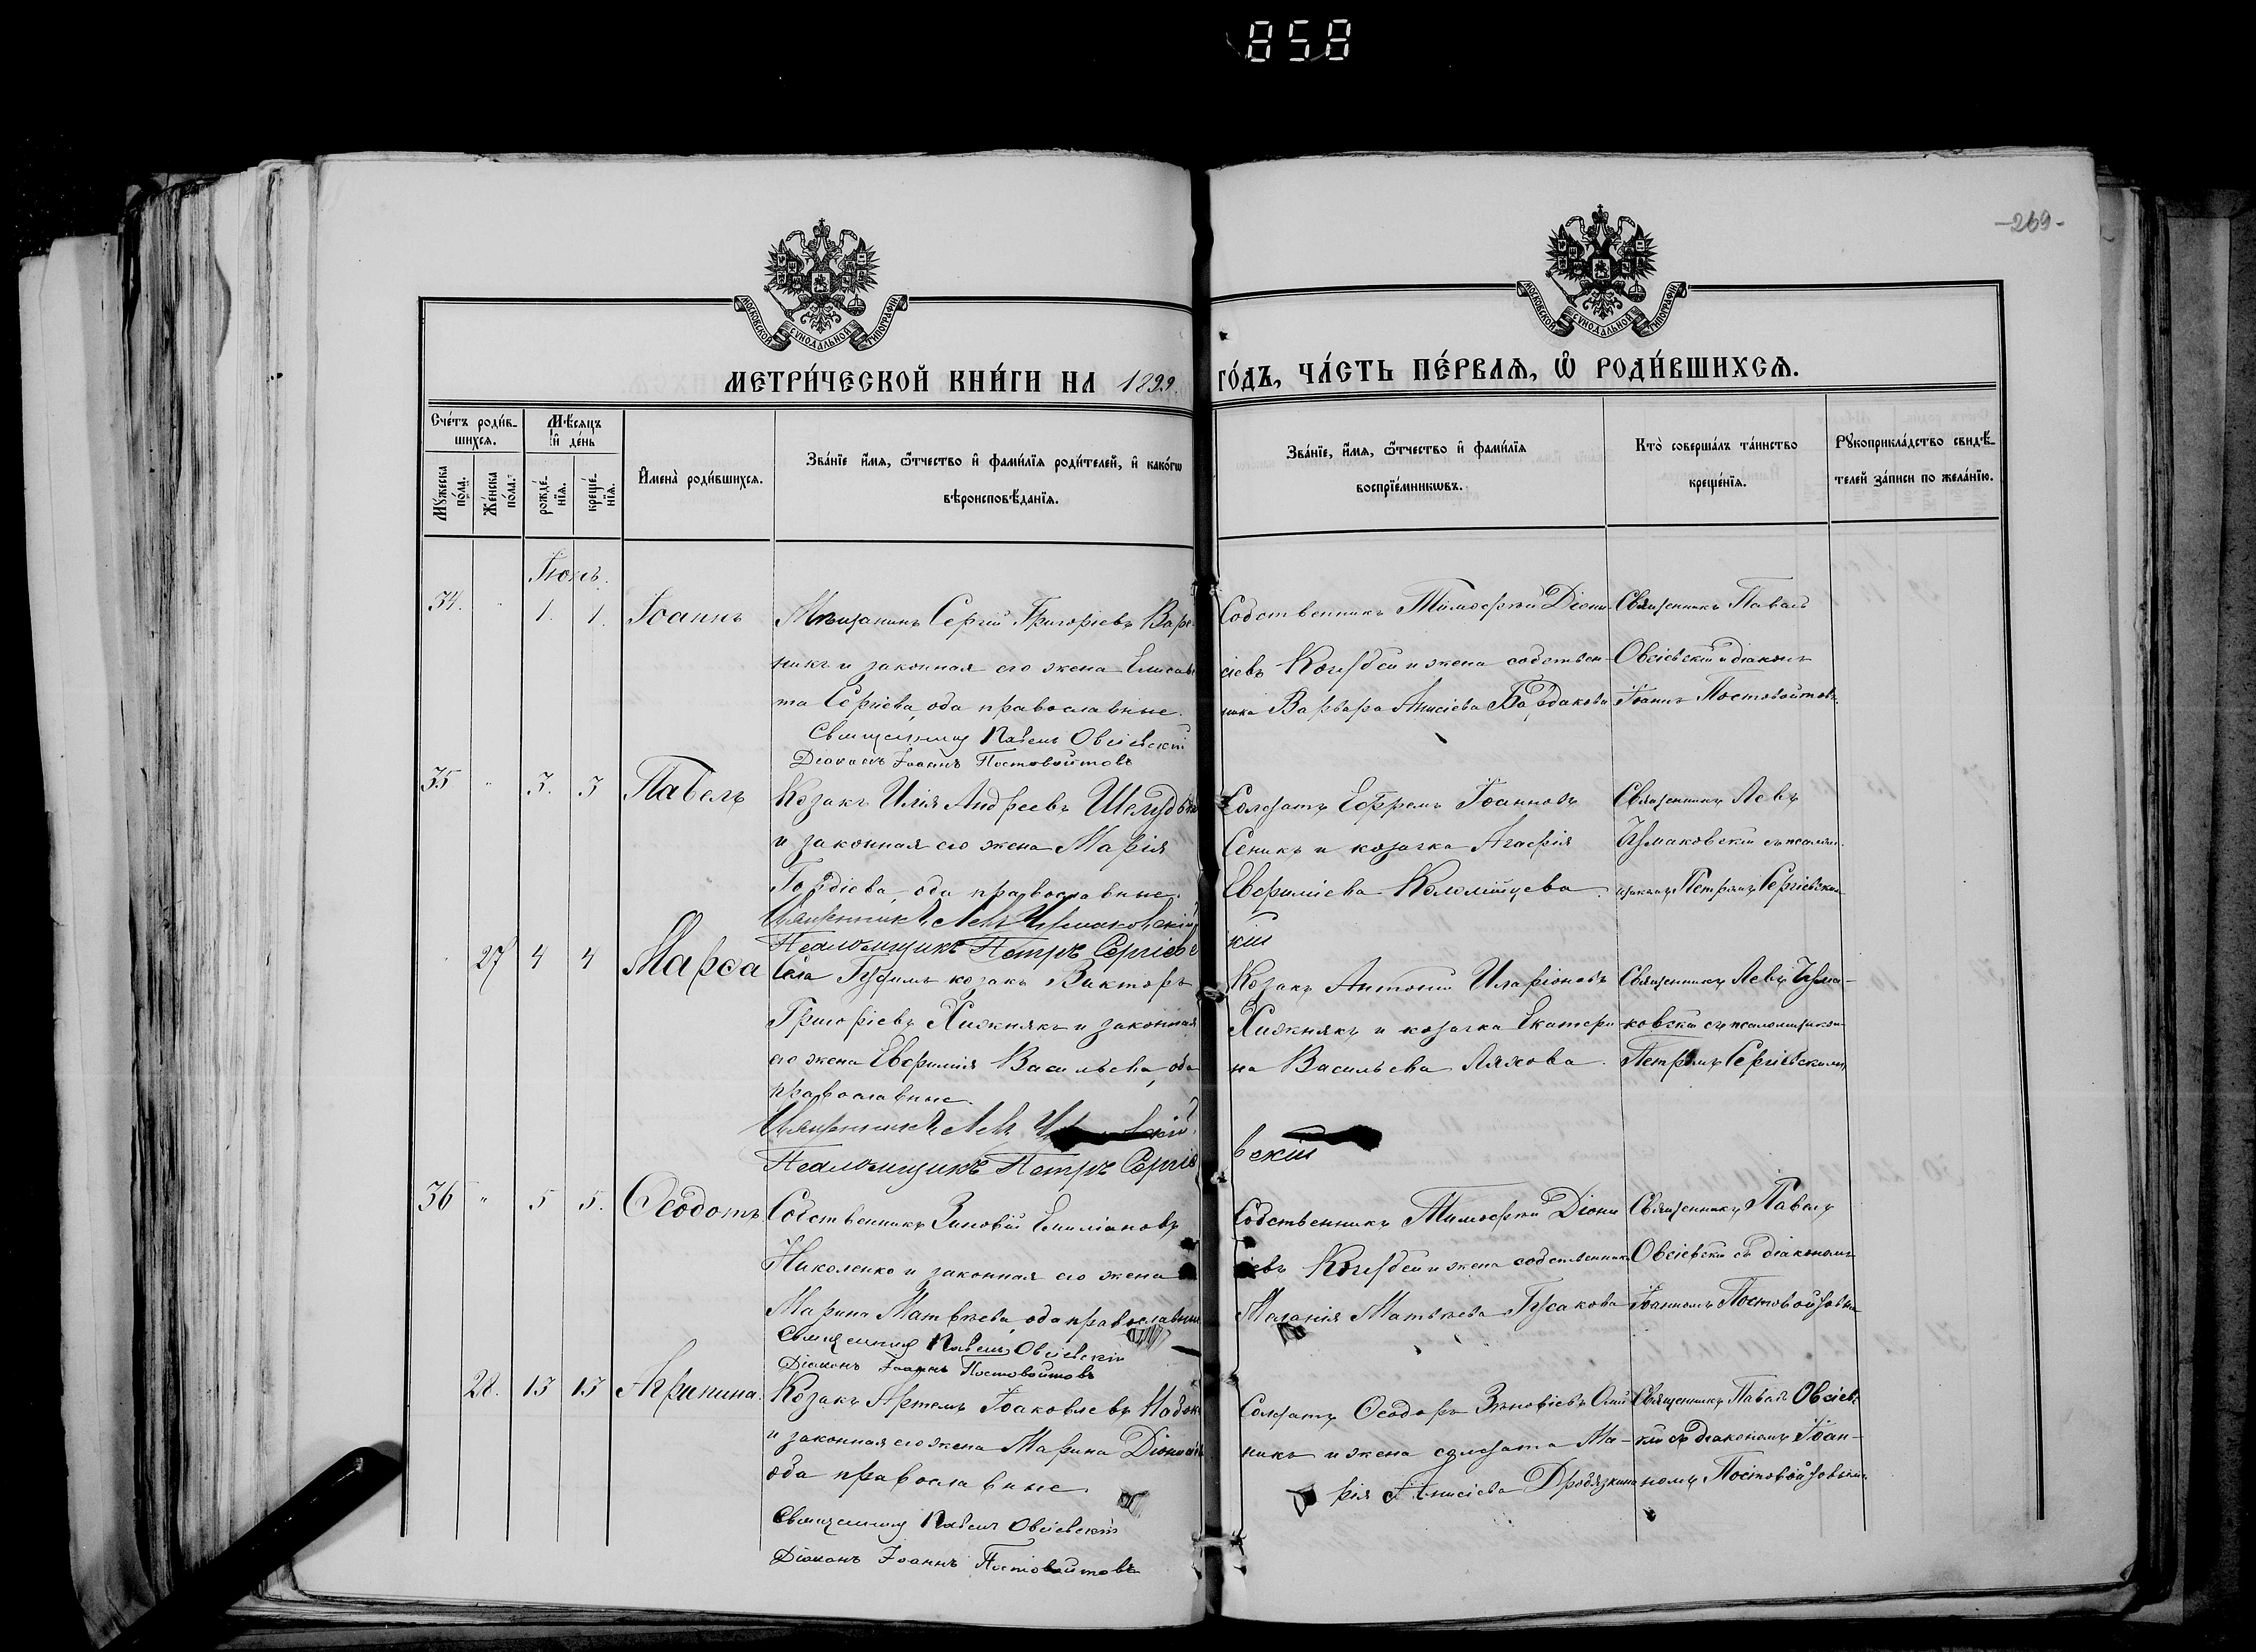 858
-269-
МОСКОВСКОЙ СѴНОДАЛЬНОЙ ТИПОГРАФІИ
МОСКОВСКОЙ СѴНОДАЛЬНОЙ ТИПОГРАФІИ
МЕТРИ́ЧЕСКОЙ КНИ́ГИ НА 1899
ГО́ДЪ, ЧА́СТЬ ПЕ́РВАѦ, Ѽ РОДИ́ВШИХСѦ.
Сче́тъ роди́в-
шихсѧ.
Мѣ́сяцъ
и҆ де́нь
Мꙋ́жеска по́ла.
Же́нска по́ла.
рожде́-
нїѧ.
креще́-
нїѧ.
И҆мена̀ роди́вшихсѧ.
Зва́нїе и҆́мѧ, ѻ҆́тчество и҆ фамилїѧ роди́телей, и҆ како́гѡ
вѣроисповѣ́данїѧ.
Зва́нїе, и҆́мѧ, ѻ҆́тчество и҆ фами́лїѧ
воспрїе́мникѡвъ.
Кто̀ соверша́лъ та́инство
креще́нїѧ.
Рꙋкоприкла́дство свидѣ́-
телей за́писи по жела́нїю.
Іюнь.
34. " 1. 1. Іоаннъ
Мѣщанинъ Сергій Григоріевъ Варе-
никъ и законная его жена Елисаве
та Сергіева, оба православные.
Священникъ Павелъ Овсіевскій
Діаконъ Іоаннъ Постовойтовъ
Собственникъ Тимоѳей Діони
сіевъ и жена собствен
ника Варвара Анисіева Бардакова
Священникъ Павелъ
Овсіевскій и діаконъ
Іоаннъ Постовойтовъ
35 " 3. 3 Павелъ
Козакъ Илія Андреевъ
и законная его жена Марія
Гордіева, оба православные.
Священникъ Левъ
Псаломщикъ Петръ Сергіевс
кій
Солдатъ Ефремъ Іоанновъ
Сеникъ и козачка Агафія
Евфиміева Коломійцева
Священникъ Левъ
съ псалом-
щикомъ Петромъ Сергіевским
27 4 4 Марѳа
Села козакъ Викторъ
Григоріевъ Хижнякъ и законная
его жена Евфимія Васильева, оба
православные.
Священникъ Левъ
Псаломщикъ Петръ Сергіе
вскій
Козакъ Антоній Иларіоновъ
Хижнякъ и козачка Екатери
на Васильева Ляхова.
Священникъ Левъ
ковскій съ псаломщикомъ
Петромъ Сергіевскимъ
36 " 5 5. Ѳеодотъ
Собственникъ Зиновій Емиліановъ
Николенко и законная его жена
Марина Матвѣева, оба православные
Священникъ Павелъ Овсіевскій
Діаконъ Іоаннъ Постовойтовъ
Собственникъ Тимоѳей Діони
сіевъ и жена собственника
Маланія Матвѣева Гусакова
Священникъ Павелъ
Овсіевскій съ діакономъ
Іоанномъ Постовойтовым
28. 13 13 Агрипина.
Козакъ Артемъ Іаковлевъ
и законная его жена Марина Діонисіе
оба православные.
Священникъ Павелъ Овсіевскій
Діаконъ Іоаннъ Постовойтовъ
Солдатъ Ѳеодоръ Зѣновіевъ Олій
никъ и жена солдата Ма-
рія Анисіева Дробязкина
Священникъ Павелъ Овсіевс
кій съ діакономъ Іоан-
номъ Постовойтовымъ